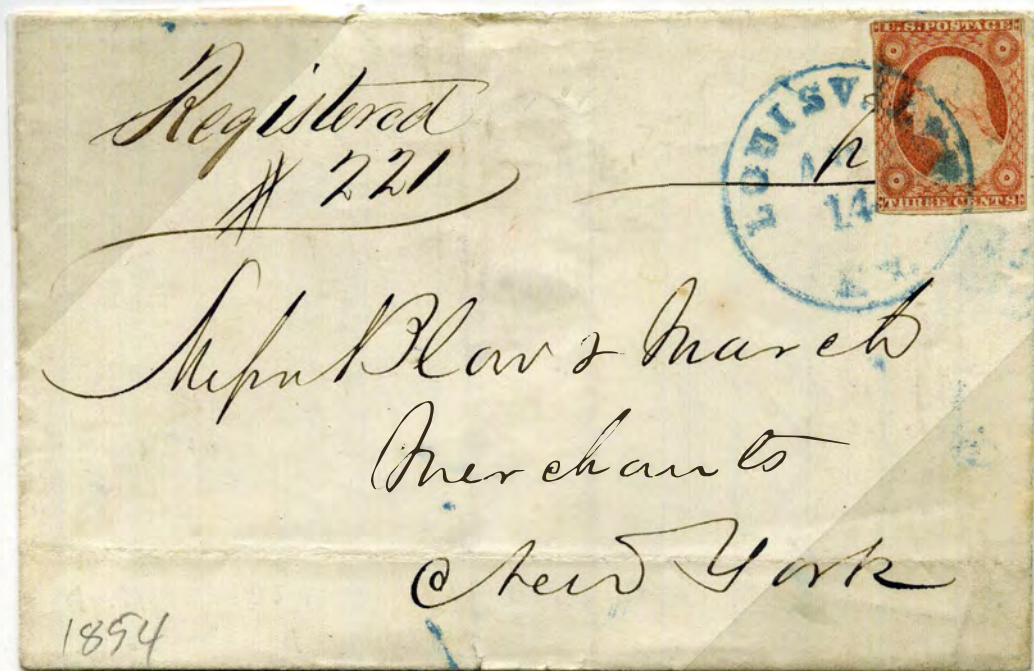 Registered
# 221
U.S. POSTAGE
THREE CENTS
LOUISVILLE
14
KY.
Messrs Blow & March
Merchants
New York
1854